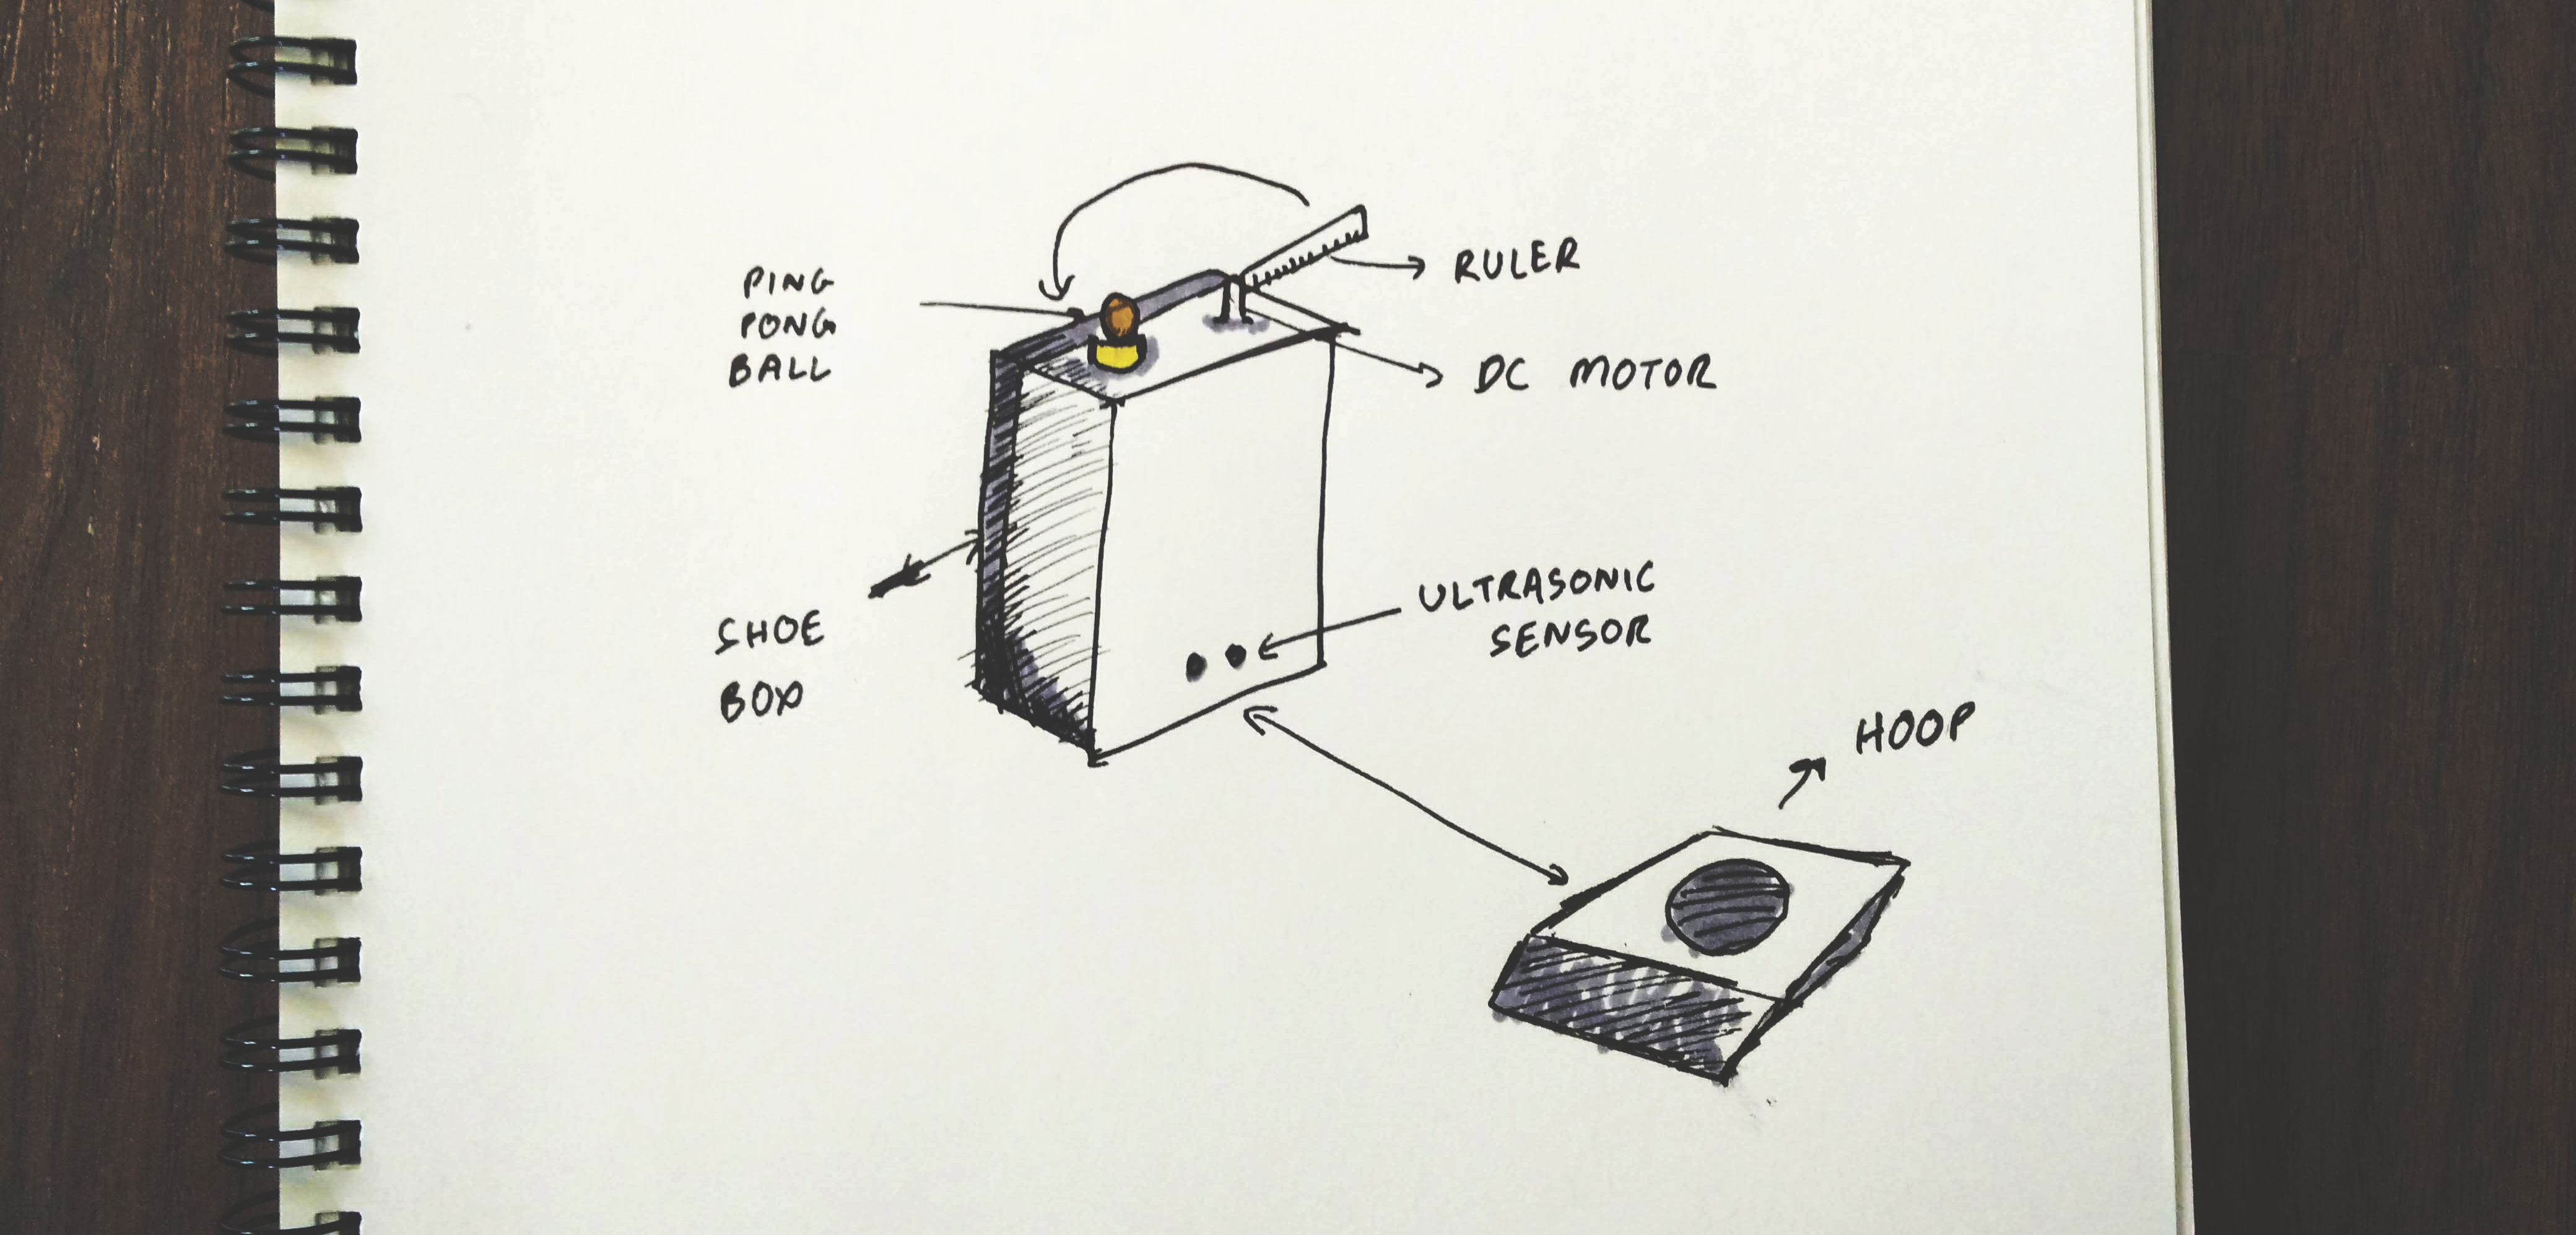 PING
PONG
BALL
RULER
DC MOTOR
SHOE
BOX
ULTRASONIC
SENSOR
HOOP